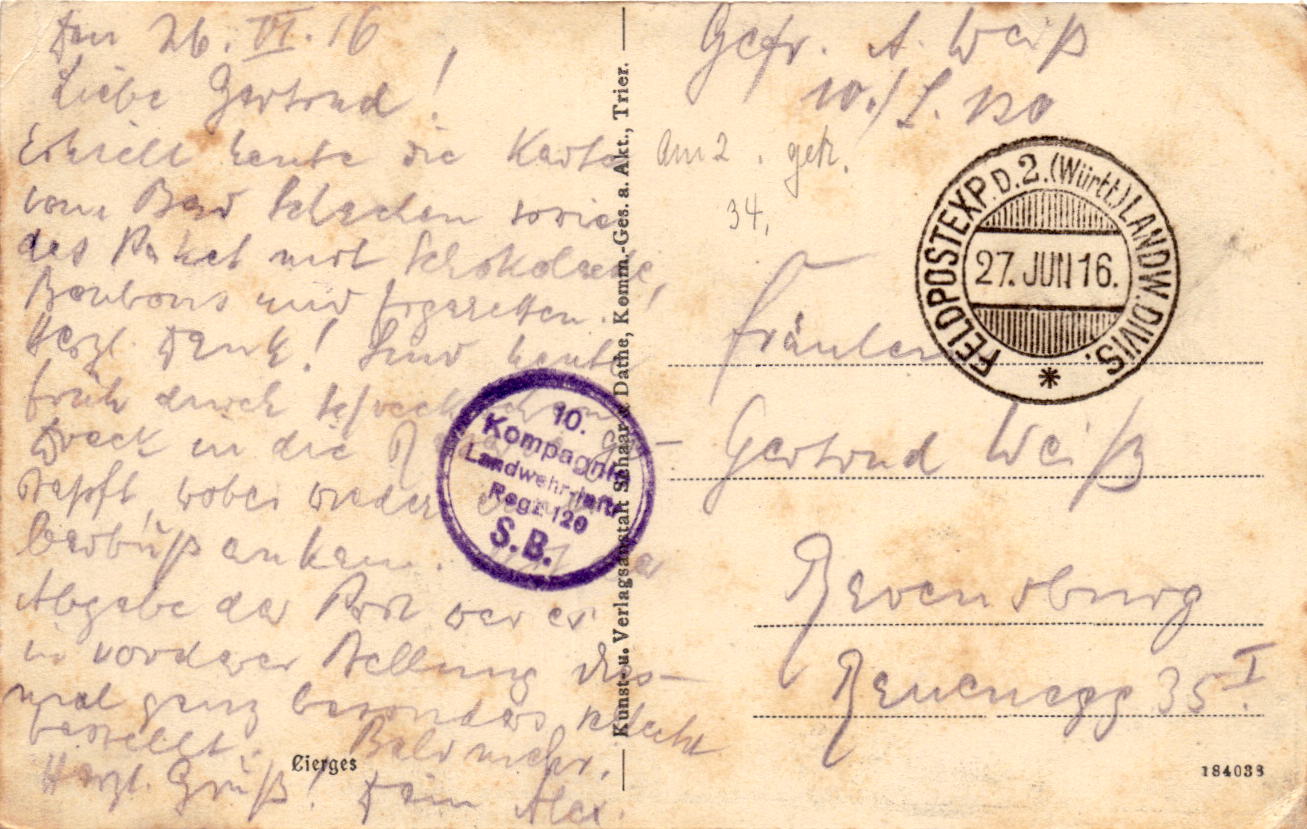 Den 26. VI. 16
Liebe Gertrud!
Erhielt heute die Karte
vom Bad Schachen sowie
das Paket mit Schokolade,
Bonbons und Zigaretten.
Herzl. Dank! Sind heute
früh durch
Dreck in die
stapft, wobei wieder
ankam.
Abgabe der Post war es
in vorderer Stellung dies-
mal ganz besonders schlecht
bestellt. Bald mehr.
Herzl. Gruß! Dein Alex.
Cierges
Kunst- u. Verlagsanstalt Schaar & Dathe, Komm.-Ges. a. Akt., Trier.
10.
Kompagnie
Landwehr-Inftr.
Regt. 120
S.B.
Gefr. A. Weiß
10./L. 120
am 2. get.
34,
FELDPOSTEXP. D. 2. (Württ.) LANDW. DIVIS.
27. JUN 16.
Fräulein
Gertrud Weiß
Ravensburg
Rauenegg 35 I.
184038